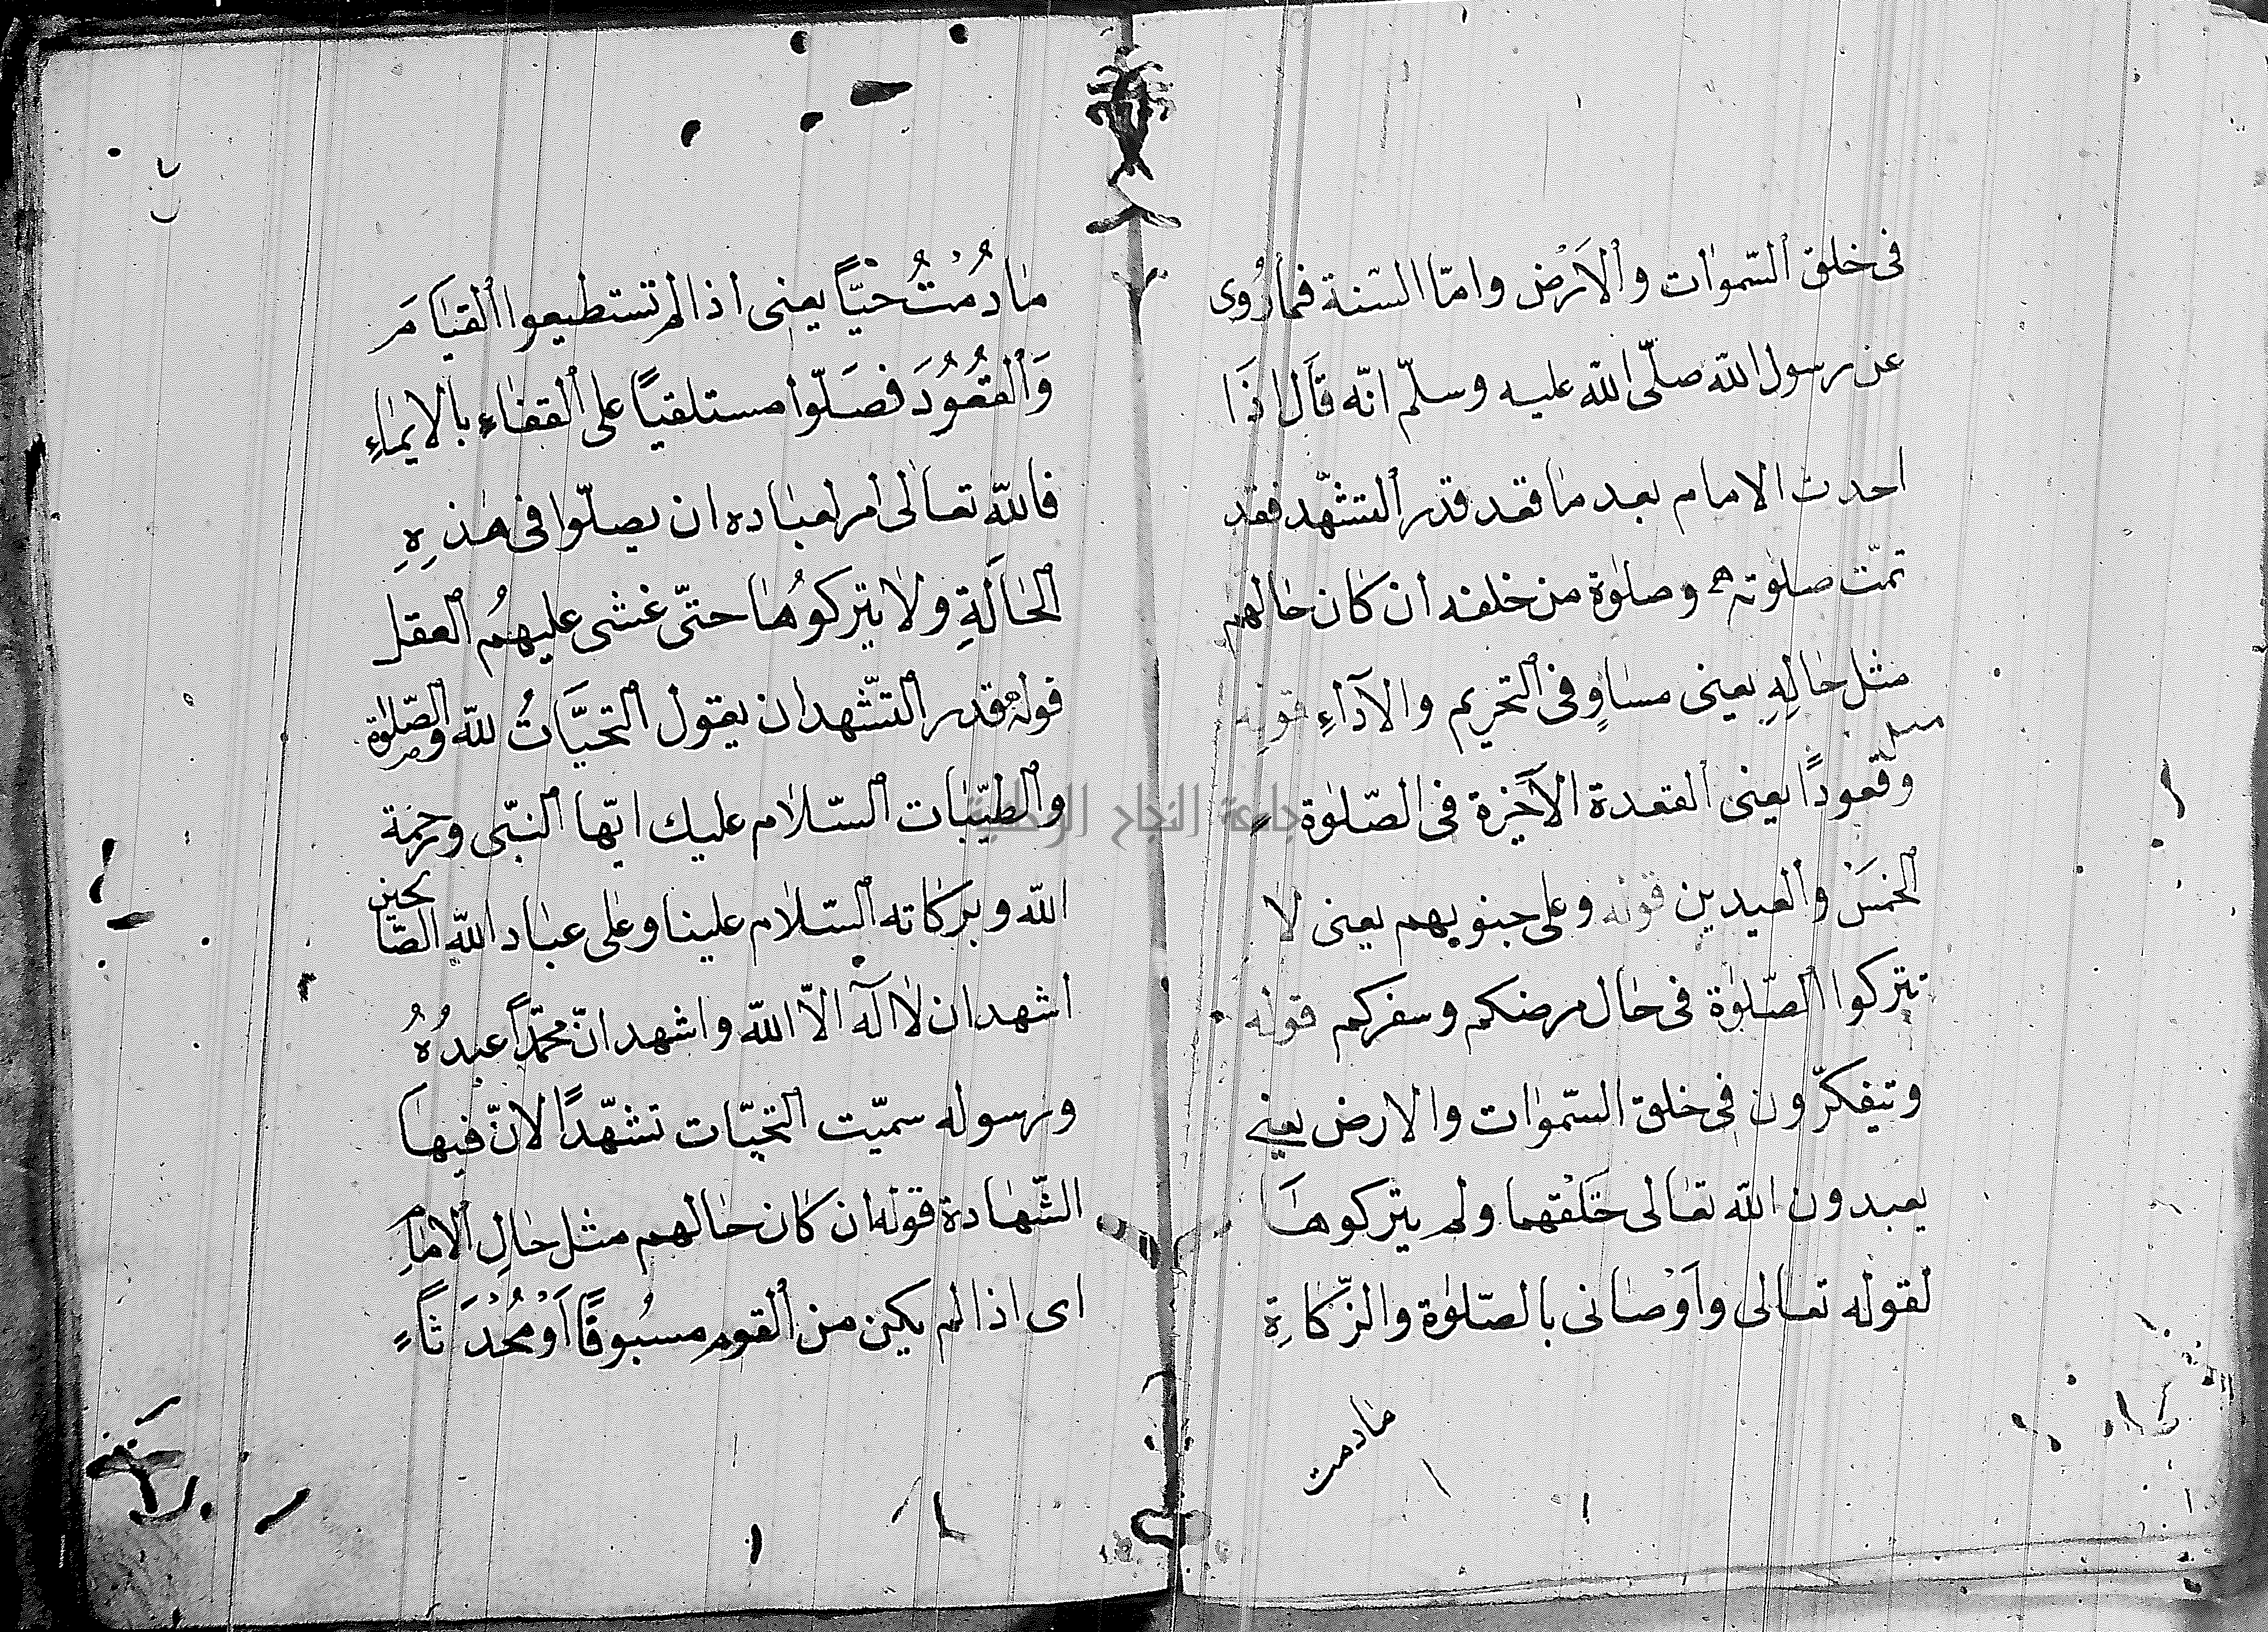 فى خلق السّموات والارْض وامّا السّنة فمارُوى
عن رسول اللّه صلّى اللّه عليه وسلّم انّه قال اذَا
احدث الامام بعد ما قعد قدر التشهّد فقد
تمّت صلوته وصلوة من خلفه ان كان حالهم
مثل حالِهِ يعينى مساوٍ فى التحريم والآداءِ قوله
وقعودًا يعنى القعدة الآخيرة فى الصّلوة
الخمسْ والعيدين قوله وعلى جنوبهم يعنى لا
تتركوا الصّلوة فى حال مرضكم وسفركم قوله
وتيفكرّون فى خلق السّموات والارض يعنے
يعبدون اللّه تعالى خَلْقهما ولم يتركوهَا
لقوله تعالى وَاَوْصانى بالصّلوة والزّكاةِ
مادمت
مادُمْتُ حَيًّا يعنى اذا لم تستطيعوا القيامَ
وَالقعُوُدَ فصَلّوا مستلقيًا على القفاءِ بالايماءِ
فاللّه تعالى امر لعباده ان يصلّوا فى هذهِ
الحالَةِ ولا يتركوُها حتّى غشى عليهمُ العقل
قوله قدر التّشهد ان يقول التحيَّاتُ للّه والصّلوة
والطيّبات السّلام عليك ايّها النبّى ورحمة
اللّه وبركاته السّلام علينا وعلى عباد اللّه الصّالحين
اشهد ان لا اله الاّ اللّه واشهد انّ محمّدًا عبدُهُ
ورسوله سميّت التحيّات تشهّدًا لانّ فيها
الشّهادة قوله ان كان حالهم مثل حالِ الامامِ
اى اذا لم يكين من القوم مسبُوقًا اَوْ مُحْدَثاً
جامعة النجاح الوطنية